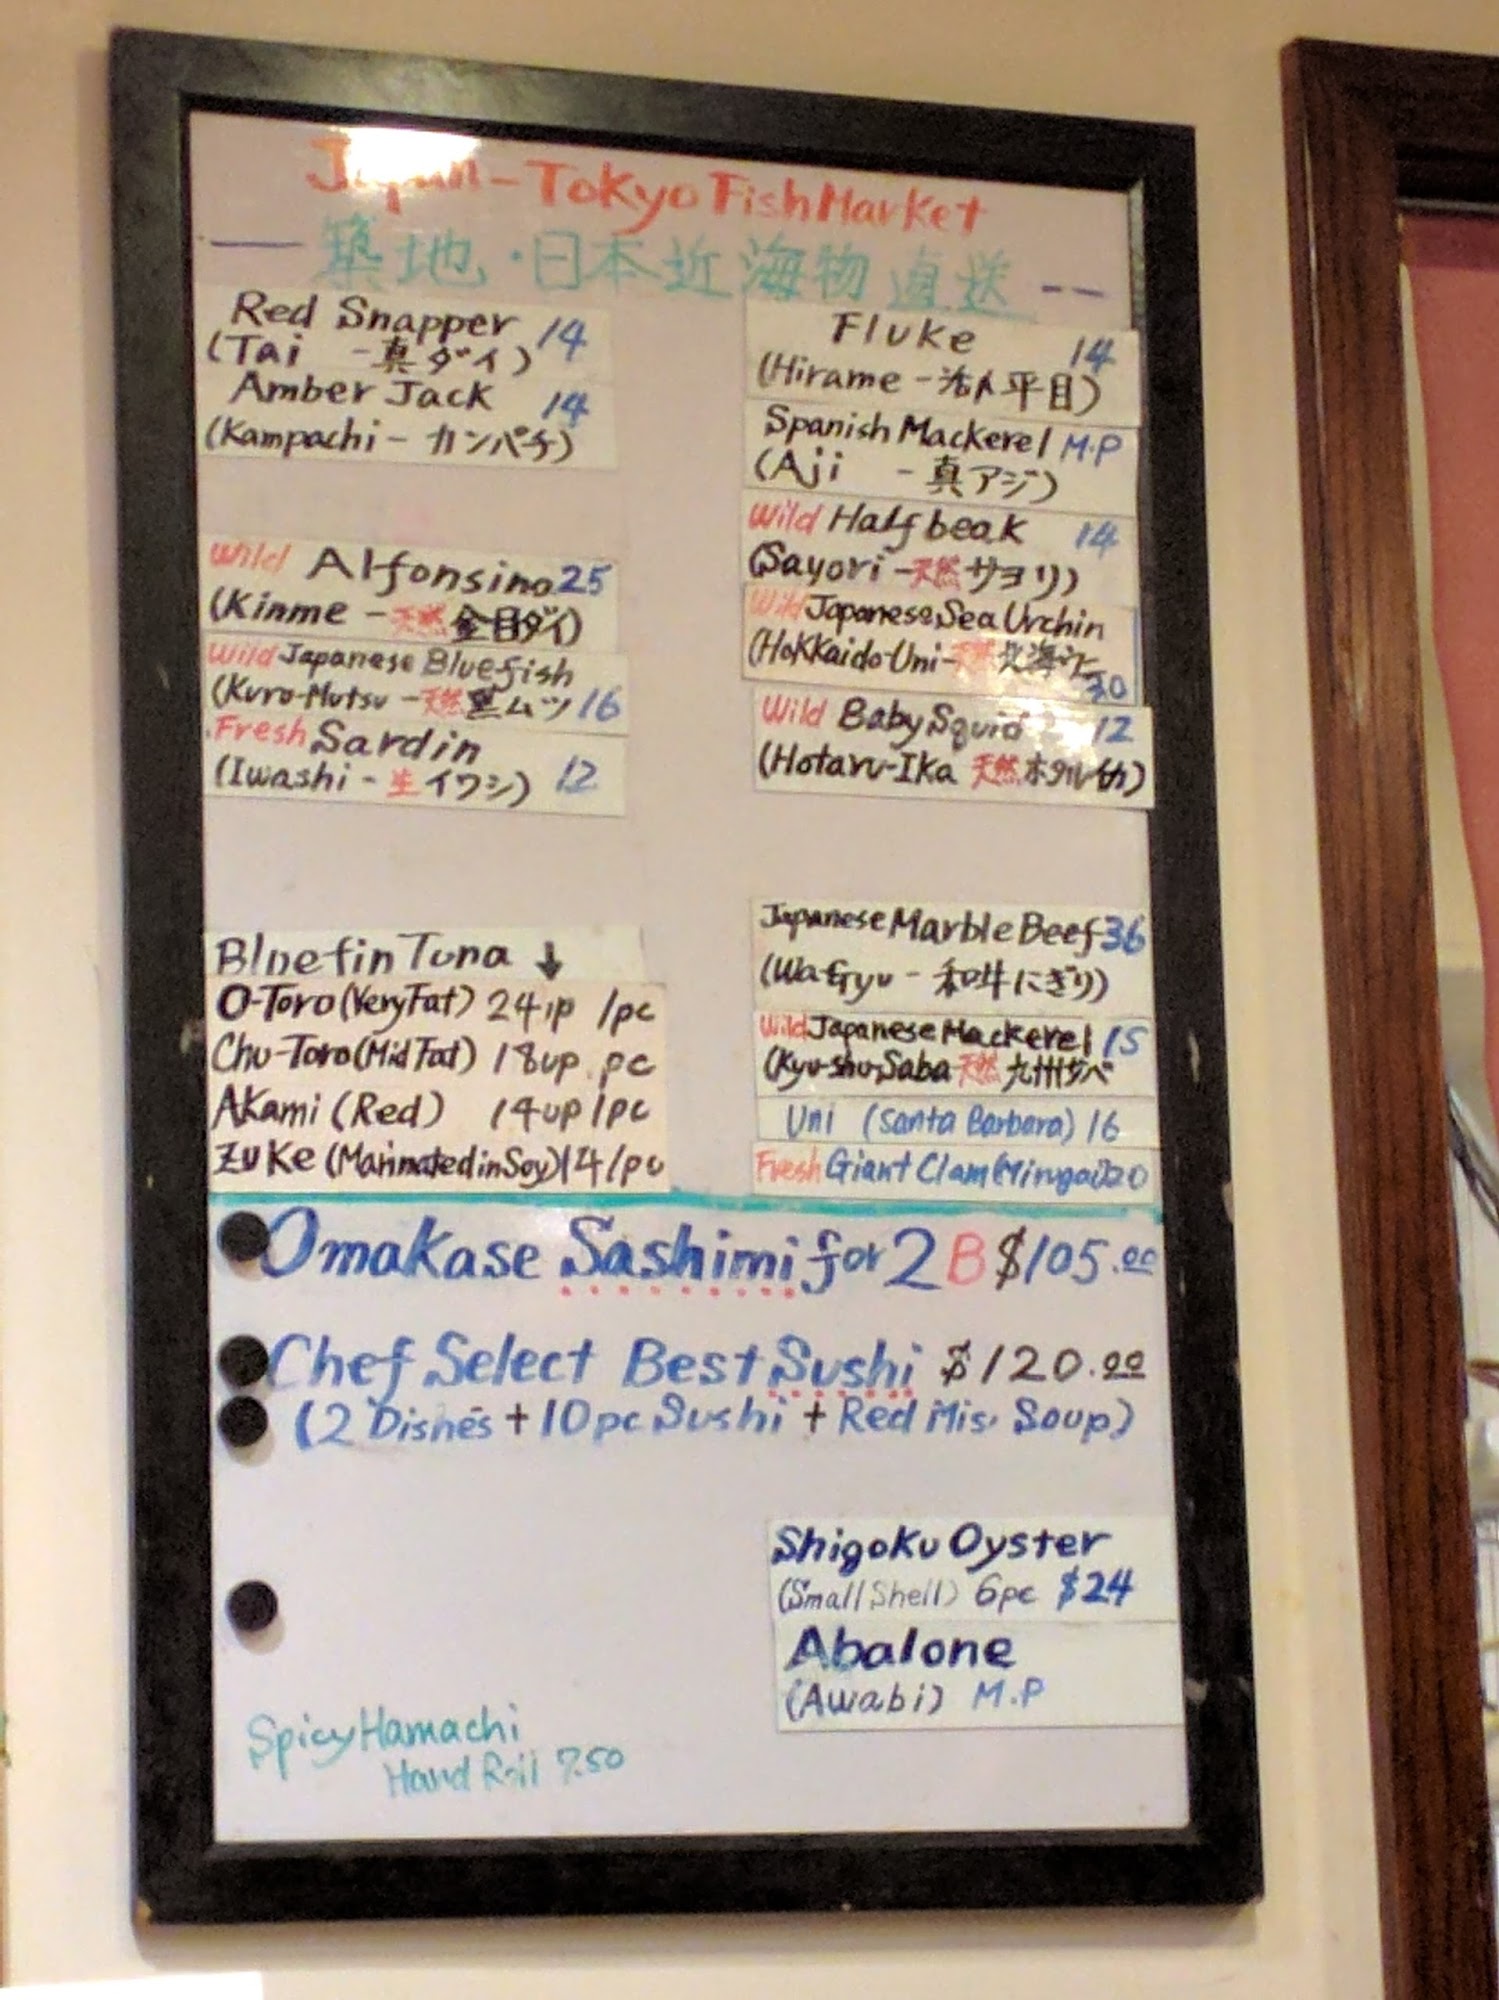 Japan-Tokyo Fish Market
築地・日本近海物直送
Red Snapper 14
(Tai - 真ダイ)
Amber Jack 14
(Kampachi - カンパチ)
Wild Alfonsino 25
(Kinme - 天然 金目ダイ)
Wild Japanese Bluefish
(Kuro-Mutsu - 天然 黒ムツ 16
Fresh Sardin
(Iwashi - 生イワシ) 12
Bluefin Tuna ↓
O-Toro (Very Fat) 24up /pc
Chu-Toro (Mid Fat) 18up pc
Akami (Red) 14up /pc
Zuke (Marinated in Soy) 14/pc
Fluke 14
(Hirame - 活〆平目)
Spanish Mackerel M.P
(Aji - 真アジ)
Wild Half beak 14
(Sayori - 天然 サヨリ)
Wild Japanese Sea Urchin
(Hokkaido-Uni- 天然 北海 30
Wild Baby Squid 12
(Hotaru-Ika 天然 ホタル
Japanese Marble Beef 36
(WaGyu - 和牛にぎり)
Wild Japanese Mackerel 15
(Kyu-shu-Saba 天然 九州サバ
Uni (Santa Barbara) 16
Fresh Giant Clam (Mirugai) 20
Omakase Sashimi for 2 B $105.00
Chef Select Best Sushi $120.00
(2 Dishes + 10pc Sushi + Red Miso Soup)
Shigoku Oyster
(Small Shell) 6pc $24
Abalone
(Awabi) M.P
Spicy Hamachi
Hand Roll 7.50